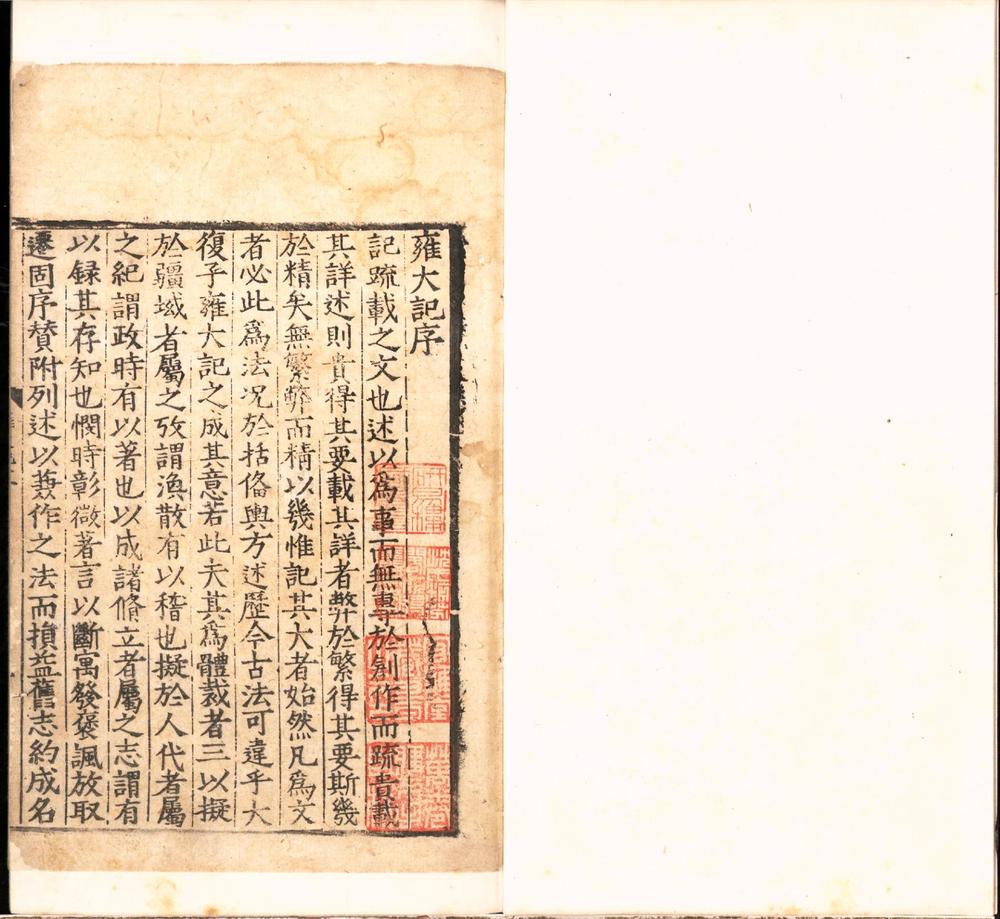 雍大記序
記疏載之文也述以為事而無專於創作而疏貴載
其詳述則貴得其要載其詳者弊於繁得其要斯幾
於精矣無繁弊而精以幾惟記其大者始然凡為文
者必此為法况於括俻輿方述歷今古法可違乎大
復子雍大記之成其意若此夫其為體裁者三以擬
於疆域者屬之攷謂渙散有以稽也擬於人代者屬
之紀謂政時有以著也以成諸脩立者屬之志謂有
以録其存知也憫時彰微著言以斷寓發褒諷放取
遷固序賛附列述以兼作之法而損益舊志約成名